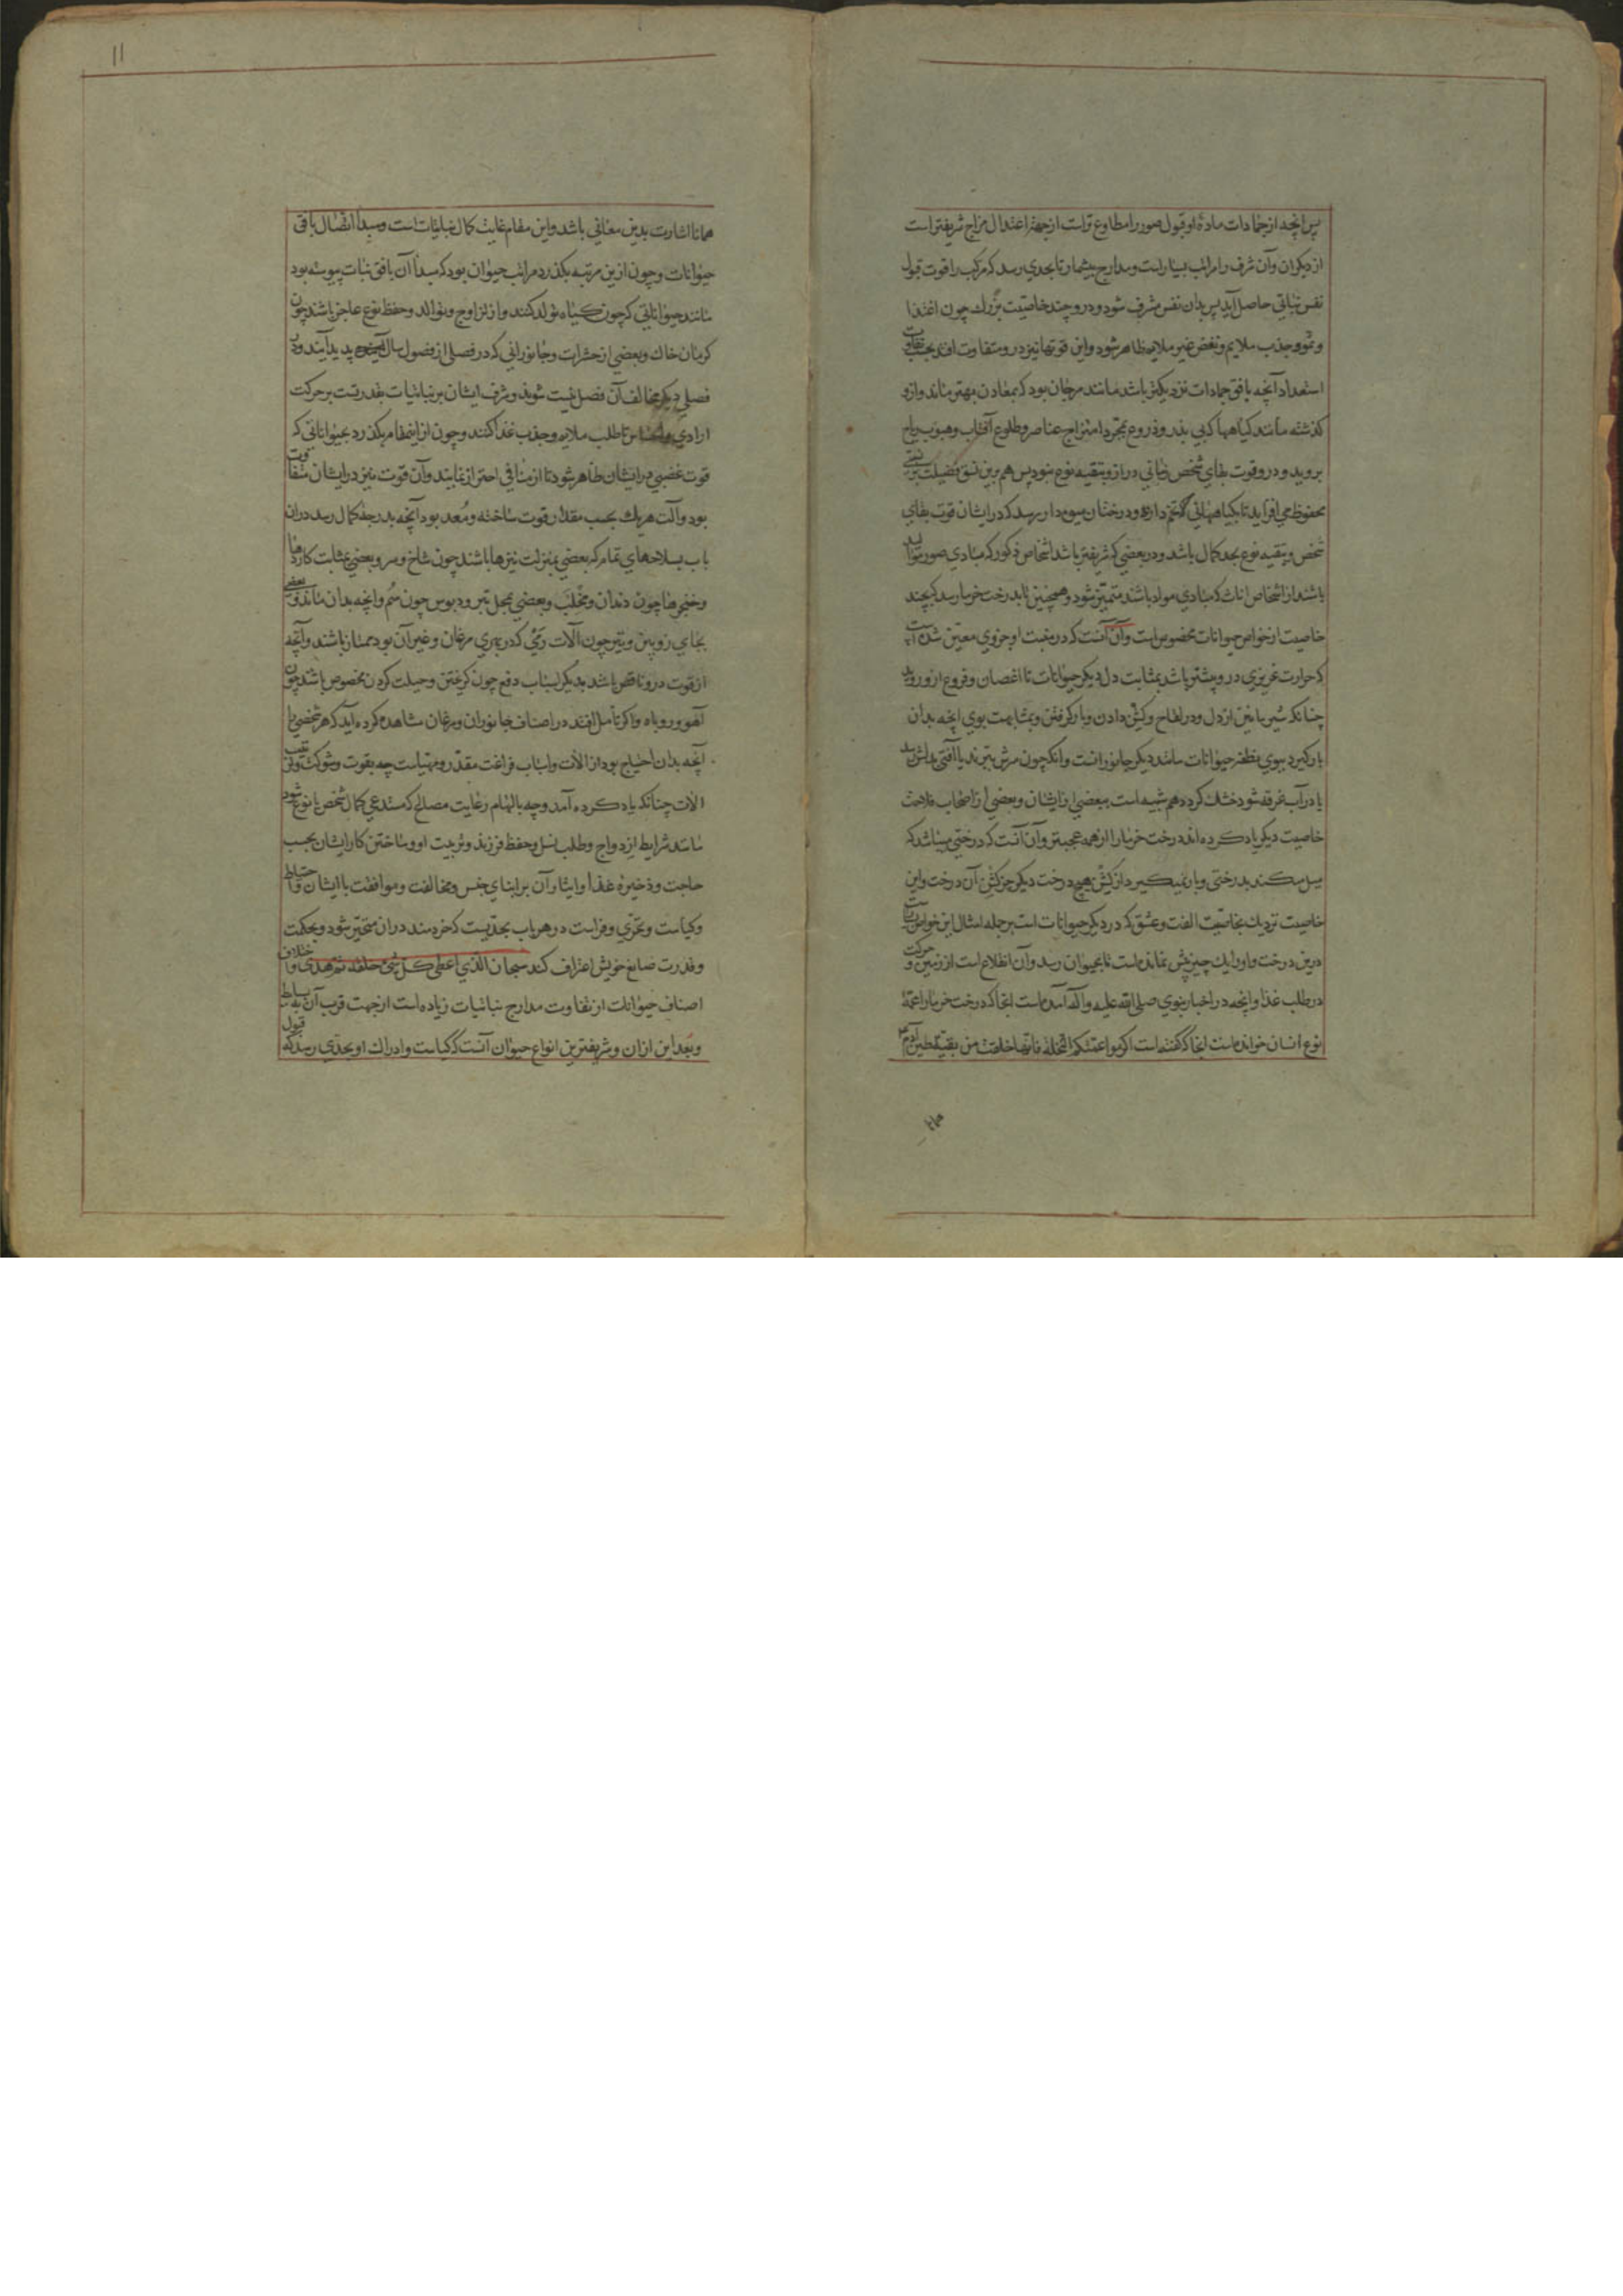 پس انچه از جمادات ماده او قبول صور را مطاوع تر است از جهة اعتدال مزاج شریفتر است
از دیکران وآن شرف را مراتب بسیار است ومدارج بیشمار تا بحدی رسد که مرکب را قوت قبول
نفس نباتی حاصل آید پس بدان نفس مشرف شود ودرو چند خاصیت بزرك چون اغتذا
ونمو وجذب ملایم ونفض غیر ملایم ظاهر شود واین قوتها نیز درو متفاوت افتد بحسب تفاوت
استعداد آنچه بافق جمادات نزدیکتر باشد مانند مرجان بود که بمعادن بهتر ماند وازو
کذشته مانند کیاههاء که بی بذر وزروع بمجرد امتزاج عناصر وطلوع آفتاب وهبوب ریاح
بروید ودرو قوت بقای شخص زمانی دراز وتبقیه نوع نبود پس هم برین نسق فضیلت بر نسبتی
محفوظ می افزاید تا بکیاههائی که تخم دارد ودرختان میوه دار رسد که در ایشان قوت بقای
شخص وتبقیه نوع بحد کمال باشد ودر بعضی که شریفتر باشد اشخاص ذکور که مبادی صور موالید
باشند از اشخاص اناث که مبادی مواد باشند متمیز شود وهمچنین تا بدرخت خرما رسد که بچند
خاصیت از خواص حیوانات مخصوص است وآن آنست که در منبت او جزوی معین شده است
که حرارت غریزی درو بیشتر باشد بمثابت دل دیکر حیوانات تا اغصان وفروع ازو روید
چنانکه شرایین از دل ودر لقاح وکشن دادن وبار کرفتن وبمشابهت بوی انچه بدان
بار کیرد ببوی نطفه حیوانات مانند دیکر جانورانست وانکه چون سرش ببرند یا آفتی بدلش رسد
یا در آب غرقه شود خشك کردد هم شبیه است ببعضی از ایشان وبعضی از اصحاب فلاحت
خاصیت دیکر یاد کرده اند درخت خرما را از همه عجیبتر وآن آنست که درختی میباشد که
میل میکند بدرختی وبار نمیکیرد از کشن هیچ درخت دیکر جز کشن آن درخت واین
خاصیت نزدیك بخاصیت الفت وعشق که در دیکر حیوانات است بر جمله امثال این خواص بسیارست
درین درخت واورا یك چیز بیش نمانده است تا بحیوان رسد وآن انقلاع است از زمین وحرکت
در طلب غذا وانچه در اخبار نبوی صلی الله علیه واله آمده است انجا که درخت خرما را عمۀ
نوع انسان خوانده است انجا که کفته است اکرموا عمتکم النخلة فانها خلقت من بقیة طین آدم
۱۱
همانا اشارت بدین معانی باشد واین مقام غایت کمال نباتات است ومبدأ اتصال بافق
حیوانات وچون ازین مرتبه بکذرد مراتب حیوان بود که مبدأ آن بافق نبات پیوسته بود
مانند حیواناتی که چون کیاه تولد کنند واز تزاوج وتوالد وحفظ نوع عاجز باشند چون
کرمان خاك وبعضی از حشرات وجانورانی که در فصلی از فصول سال پدید آیند ودر
فصلی دیکر مخالف آن فصل نیست شوند وشرف ایشان بر نباتیات بقدر قدرتست بر حرکت
ارادی واحساس تا طلب ملایم وجذب غذا کنند وچون از اینمقام بکذرد بحیواناتی که
قوت غضبی در ایشان ظاهر شود تا از منافی احتراز نمایند وآن قوت نیز در ایشان متفاوت
بود وآلت هریك بحسب مقدار قوت ساخته ومعد بود آنچه بدرجۀ کمال رسد در ان
باب بسلاحهای تمام که بعضی بمنزلت نیزها باشند چون شاخ وسرو وبعضی بمثابت کاردها
وخنجرها چون دندان ومخلب وبعضی بمحل تبر ودبوس چون سُم وانچه بدان ماند وبعضی
بجای زوبین وتیر چون آلات رمی که در بری مرغان وغیر آن بود ممتاز باشند وآنچه
از قوت درو ناقص باشد بدیکر اسباب دفع چون کریختن وحیلت کردن مخصوص باشد چون
آهو وروباه واکر تأمل افتد در اصناف جانوران ومرغان مشاهده کرده آید که هر شخصی را
آنچه بدان احتیاج بود از الات واسباب فراغت مقدر ومهیاست چه بقوت وشوکت وترتیب
الات چنانکه یاد کرده آمد وچه بالهام رعایت مصالح که مستدعی کمال شخص یا نوع شود
مانند شرایط ازدواج وطلب نسل وحفظ فرزند وتربیت او وساختن کار ایشان بحسب
حاجت وذخیرۀ غذا وایثار آن بر ابنای جنس ومخالفت وموافقت با ایشان واحتیاط
وکیاست وتحری وفراست در هر باب بحدیست که خردمند در ان متحیر شود وبحکمت
وقدرت صانع خویش اعتراف کند سبحان الذی اعطی کل شیء خلقه ثم هدی واختلاف
اصناف حیوانات از تفاوت مدارج نباتیات زیاده است از جهت قرب آن به بسایط
وبعد این ازان وشریفترین انواع حیوان آنست که کیاست وادراك او بحدی رسد که قبول